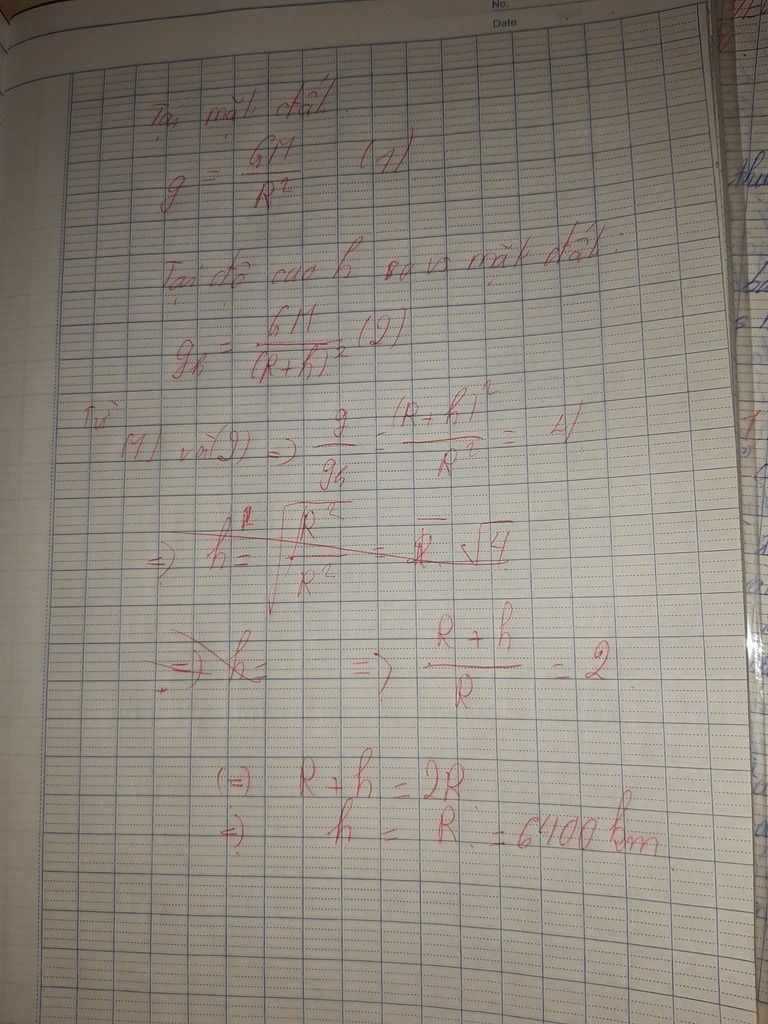 No.
Date
Tại mặt đất
g = GM/R² (1)
Tại độ cao h so vs mặt đất:
gh = GM/(R+h)² (2)
Từ (1) và (2) => g/gh = (R+h)²/R² = 4
=> R+h/R = 2
(=) R+h = 2R
=) h = R = 6400 km